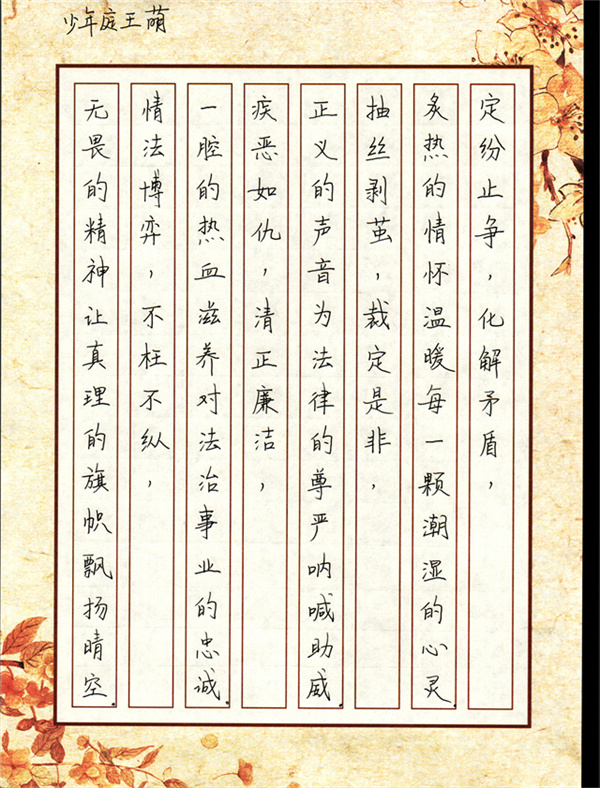 少年庭王萌
定纷止争，化解矛盾，
炙热的情怀温暖每一颗潮湿的心灵.
抽丝剥茧，裁定是非，
正义的声音为法律的尊严呐喊助威.
疾恶如仇，清正廉洁，
一腔的热血滋养对法治事业的忠诚.
情法博弈，不枉不纵，
无畏的精神让真理的旗帜飘扬晴空.